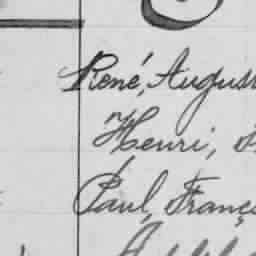 René, Augus
Henri,
Paul, Franç